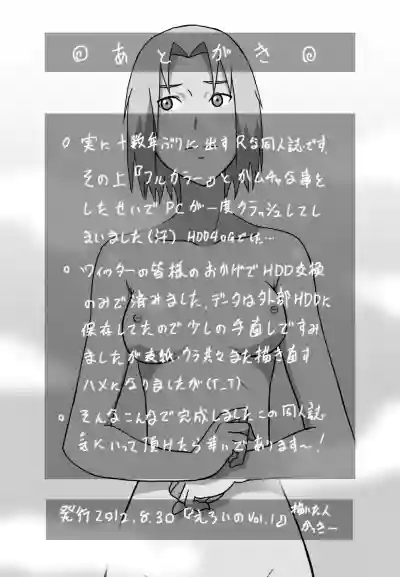 ◎あとがき◎
○ 実に十数年ぶりに出すRな同人誌です
その上『フルカラー』とかムチャな事を
したせいでPCが一度クラッシュしてし
まいました(汗) HDD40Gでは…
○ ツイッターの皆様のおかげでHDD交換
のみで済みました。データは外部HDDに
保存してたので少しの手直しですみ
ましたが表紙・ウラ共々また描き直す
ハメになりましたが(T_T)
○ そんなこんなで完成しましたこの同人誌
気にいって頂けたら幸いであります〜!
発行2012.8.30『えろいのVol.1』
描いた人
かっきー